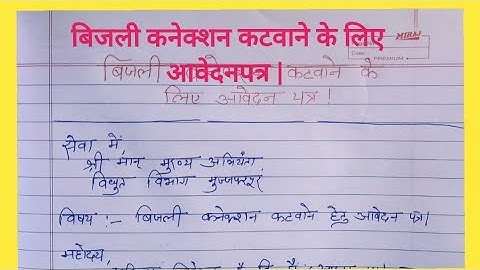 बिजली कनेक्शन कटवाने के लिए
आवेदनपत्र |
MIRAJ
Date
PREMIUM
बिजली कटवाने के
लिए आवेदन पत्र !
सेवा में,
श्री मान् मुख्य अभियंता
विधुत विभाग मुज्जफरपुर
विषय :- बिजली कनेक्शन कटवाने हेतु आवेदन पत्र।
महोदय,